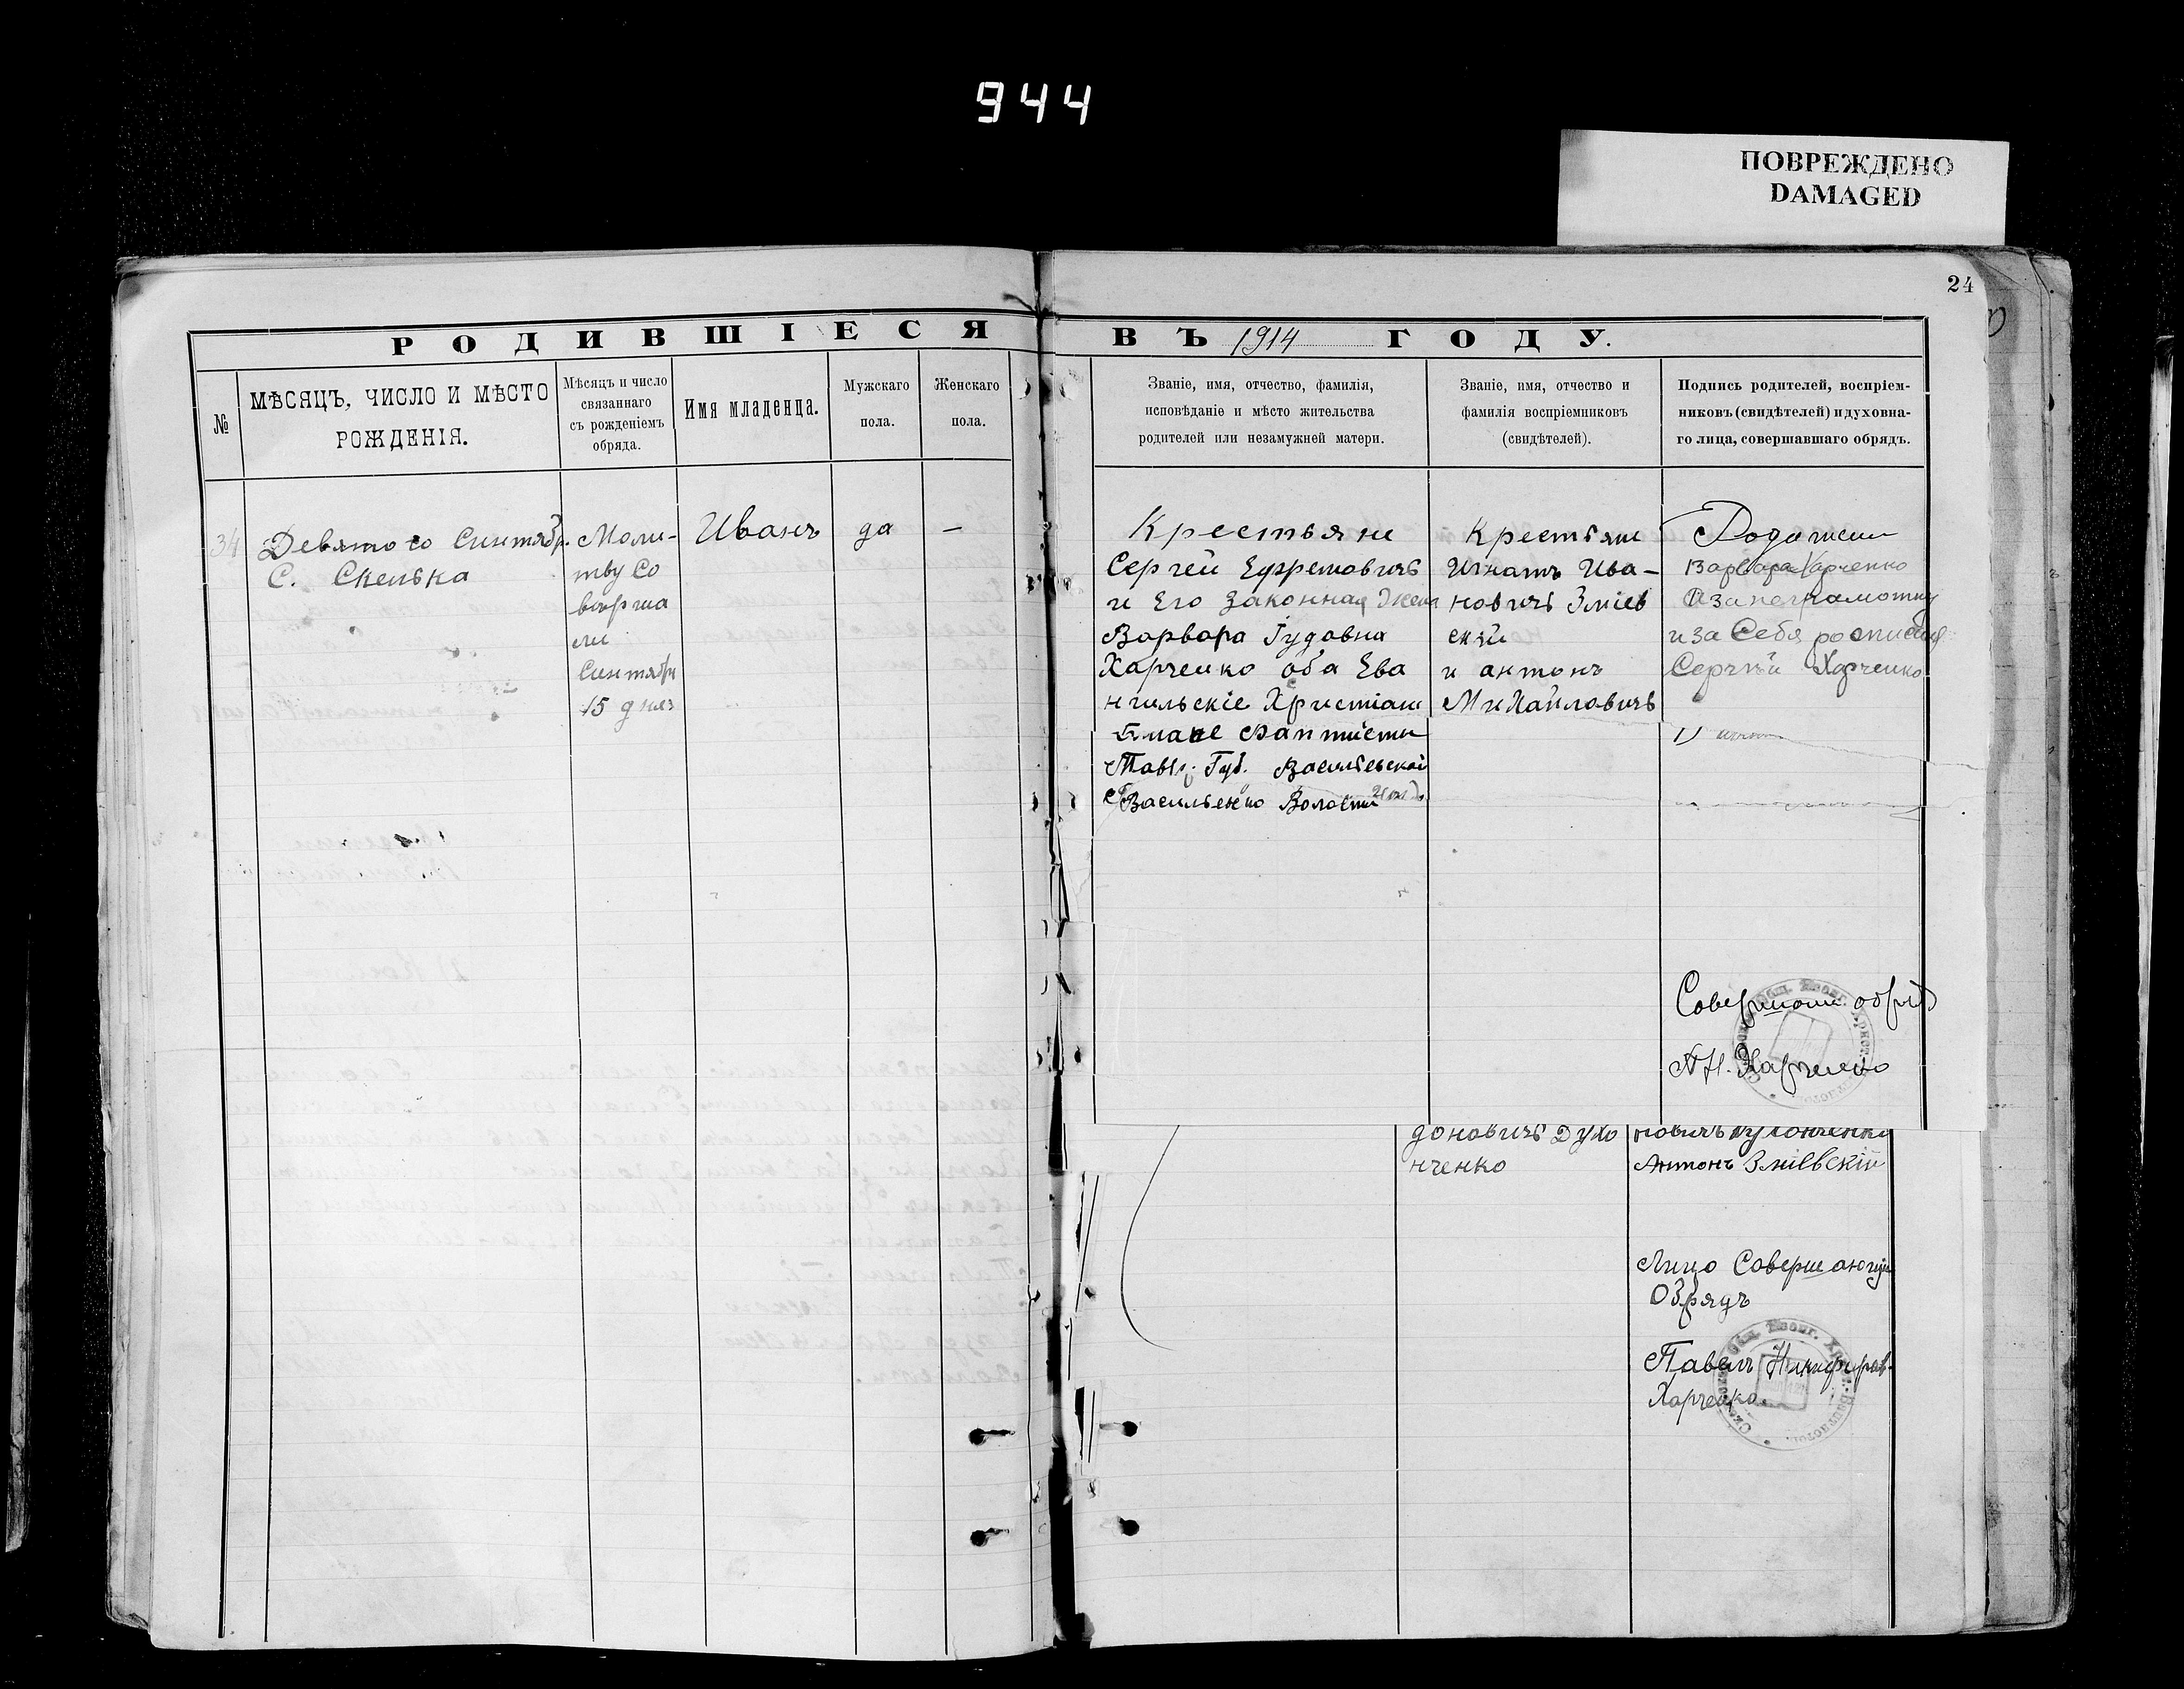 944
ПОВРЕЖДЕНО
DAMAGED
24
РОДИВШІЕСЯ ВЪ 1914 ГОДУ.
№
МѢСЯЦЪ, ЧИСЛО И МѢСТО
РОЖДЕНІЯ.
Мѣсяцъ и число
связаннаго
съ рожденіемъ
обряда.
Имя младенца.
Мужскаго
пола.
Женскаго
пола.
Званіе, имя, отчество, фамилія,
исповѣданіе и мѣсто жительства
родителей или незамужней матери.
Званіе, имя, отчество и
фамилія воспріемниковъ
(свидѣтелей).
Подпись родителей, воспріем-
никовъ (свидѣтелей) и духовна-
го лица, совершавшаго обрядъ.
34
Девятого Синтябр.
С. Скелька
Моли-
тву Со
вершa
ли
Синтября
15 дня
Иванъ
да
—
Крестьяне
Сергей Ефремовичъ
и Его Законная Жена
Варвара Іудовна
Харченко оба Ева
нгильскіе Христіани
баптисти
Тавр. Губ. Васильевской
Василевко Волости
Крестьяне
Игнатъ Ива-
новичъ Зміев
скій
и антонъ
Михайловичъ
Родители
Варвара Харченко
А за неграмотну
и за Себя росписався
Сергѣй Харченко
Совершали обряд
А Н. Харченко
доновичъ Духо
нченко
новичъ Духонченко
Антонъ Зміевскій
Лицо Совершающи
Обрядъ
Павелъ Никифоров.
Харченко.